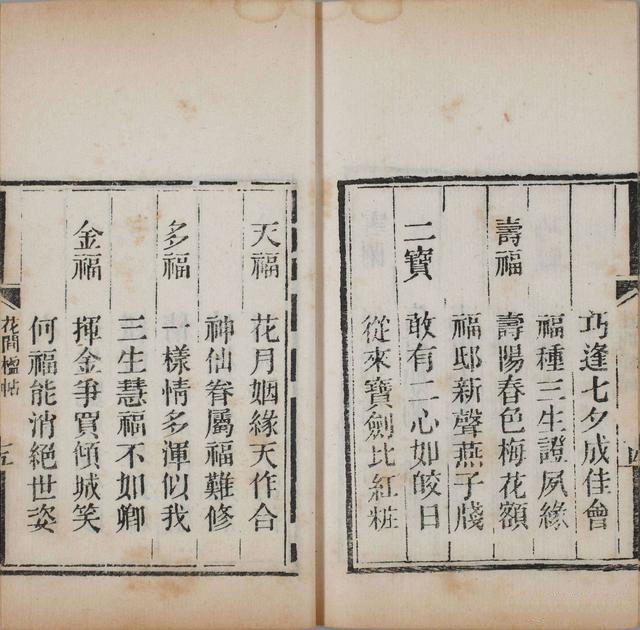 巧逢七夕成佳會
福種三生證夙緣
壽福 壽陽春色梅花額
福邸新聲燕子牋
二寶 敢有二心如皎日
從來寶劍比紅粧
天福 花月姻緣天作合
神仙眷屬福難修
多福 一樣情多渾似我
三生慧福不如卿
金福 揮金爭買傾城笑
何福能消絕世姿
花間楹帖
五